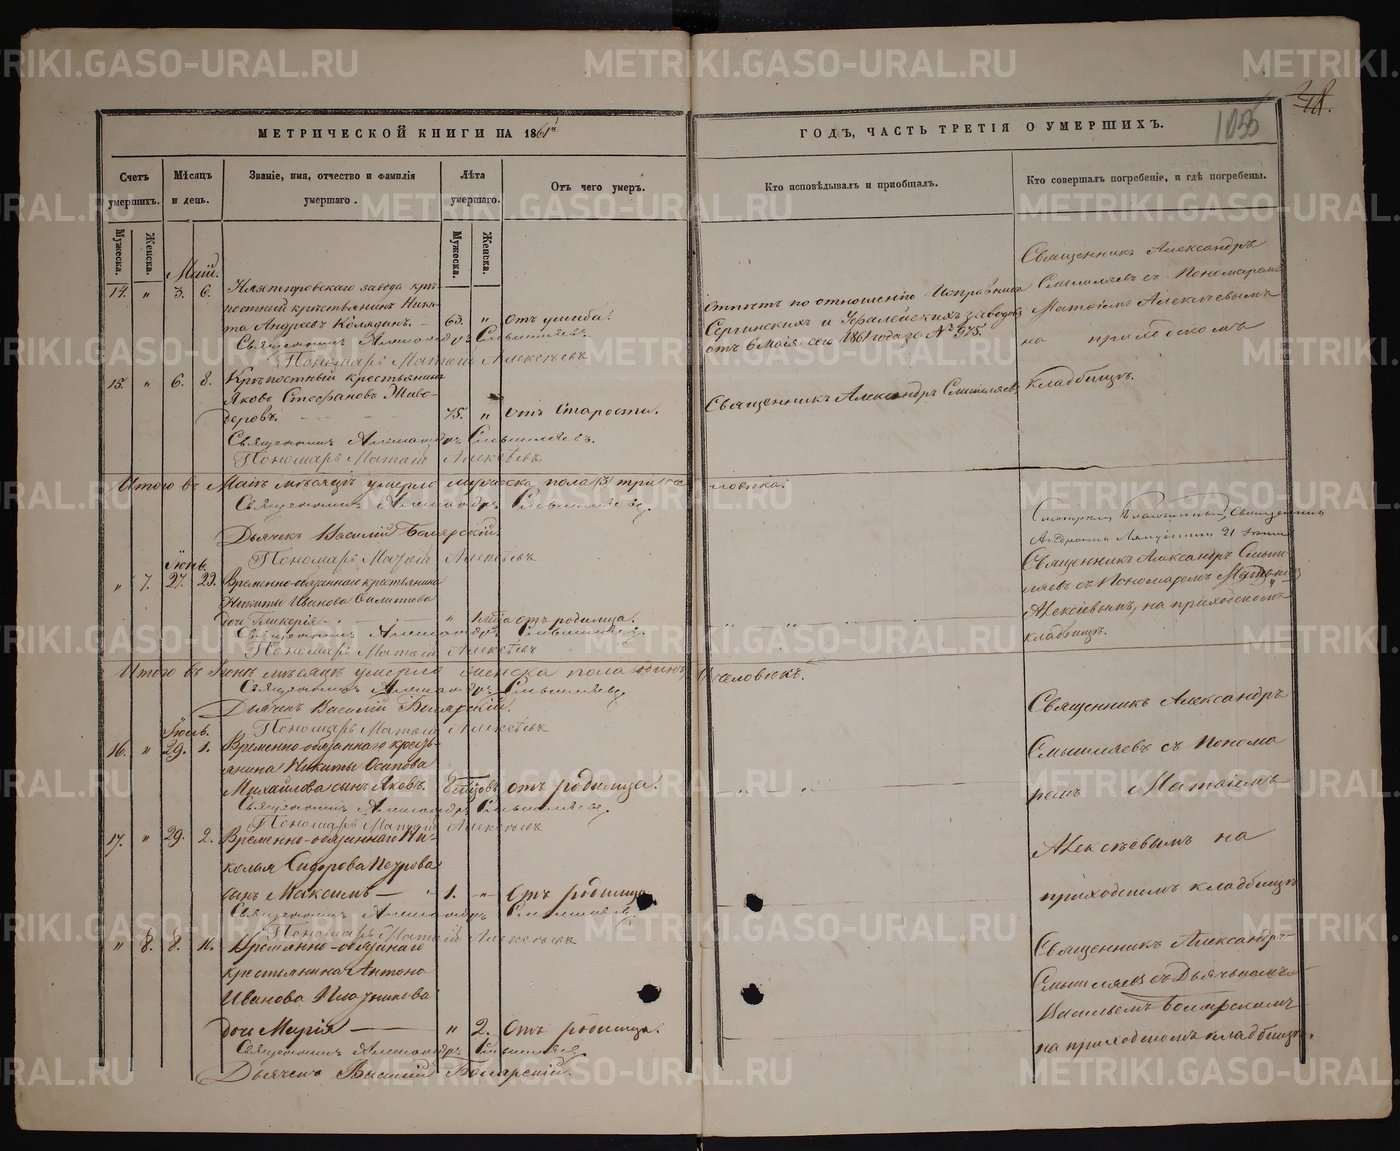 МЕТРИЧЕСКОЙ КНИГИ НА 1861й
ГОДЪ, ЧАСТЬ ТРЕТІЯ О УМЕРШИХЪ.
105
Счетъ умершихъ.
Мѣсяцъ и день.
Званіе, имя, отчество и фамилія умершаго.
Лѣта умершаго.
Отъ чего умеръ.
Кто исповѣдывалъ и пріобщалъ.
Кто совершалъ погребеніе, и гдѣ погребены.
Мужеска.
Женска.
Мужеска.
Женска.
Май.
14. " 3. 6.
завода крѣ-
постный крестьянинъ Ники-
та Андреевъ Колядинъ. 63. " отъ ушиба.
Священникъ Александръ Смышляевъ.
Пономарь Матѳій Алексѣевъ
отпѣтъ по отношенію Исправника
Сергинскихъ и Уфалейскихъ заводовъ
отъ 6 Мая сего 1861 года за № 975.
Священникъ Александръ
Смышляевъ съ Пономаремъ
Матѳіемъ Алексѣевымъ
на приходскомъ
кладбищѣ.
15. " 6. 8. Крѣпостный крестьянинъ
Яковъ Стефановъ Живо-
деровъ. 75. " отъ Старости.
Священникъ Александръ Смышляевъ.
Пономарь Матѳій Алексѣевъ
Священникъ Александръ Смышляевъ
Итого въ Маѣ мѣсяцѣ умерло мужеска пола /3/ три человѣка.
Священникъ Александръ Смышляевъ
Дьячекъ Василій Боярскій
Пономарь Матѳій Алексѣевъ
Іюнь.
" 7. 27. 29. Временно-обязаннаго крестьянина
Никиты Иванова Филатова
дочь Гликерія " отъ родимца.
Священникъ Александръ Смышляевъ
Пономарь Матѳій Алексѣевъ
Священникъ Александръ Смыш-
ляевъ съ Пономаремъ
Алексѣевымъ, на приходскомъ
кладбищѣ.
Итого въ Іюнѣ мѣсяцѣ умерло женска пола одинъ человѣкъ.
Священникъ Александръ Смышляевъ
Дьячекъ Василій Боярскій
Пономарь Матѳій Алексѣевъ
Іюль.
16. " 29. 1. Временно-обязаннаго кресть-
янина Никиты Осипова
Михайлова сынъ Яковъ. отъ родимца.
Священникъ Александръ Смышляевъ
Пономарь Матѳій Алексѣевъ
Священникъ Александръ
Смышляевъ съ Понома
ремъ Матѳіемъ
Алексѣевымъ на
приходскомъ кладбищѣ
17. " 29. 2. Временно-обязаннаго Ни-
колая Сидорова Петрова
сынъ Максимъ 1. " Отъ родимца
Священникъ Александръ Смышляевъ
Пономарь Матѳій Алексѣевъ
" 8. 8. Временно-обязаннаго
крестьянина Антона
Иванова Плотникова
дочь Марія " 2. Отъ родимца.
Священникъ Александръ Смышляевъ
Дьячекъ Василій Боярскій.
Священникъ Александръ
Смышляевъ съ Дьячкомъ
Васильемъ Боярскимъ
на приходскомъ кладбищѣ.
METRIKI.GASO-URAL.RU